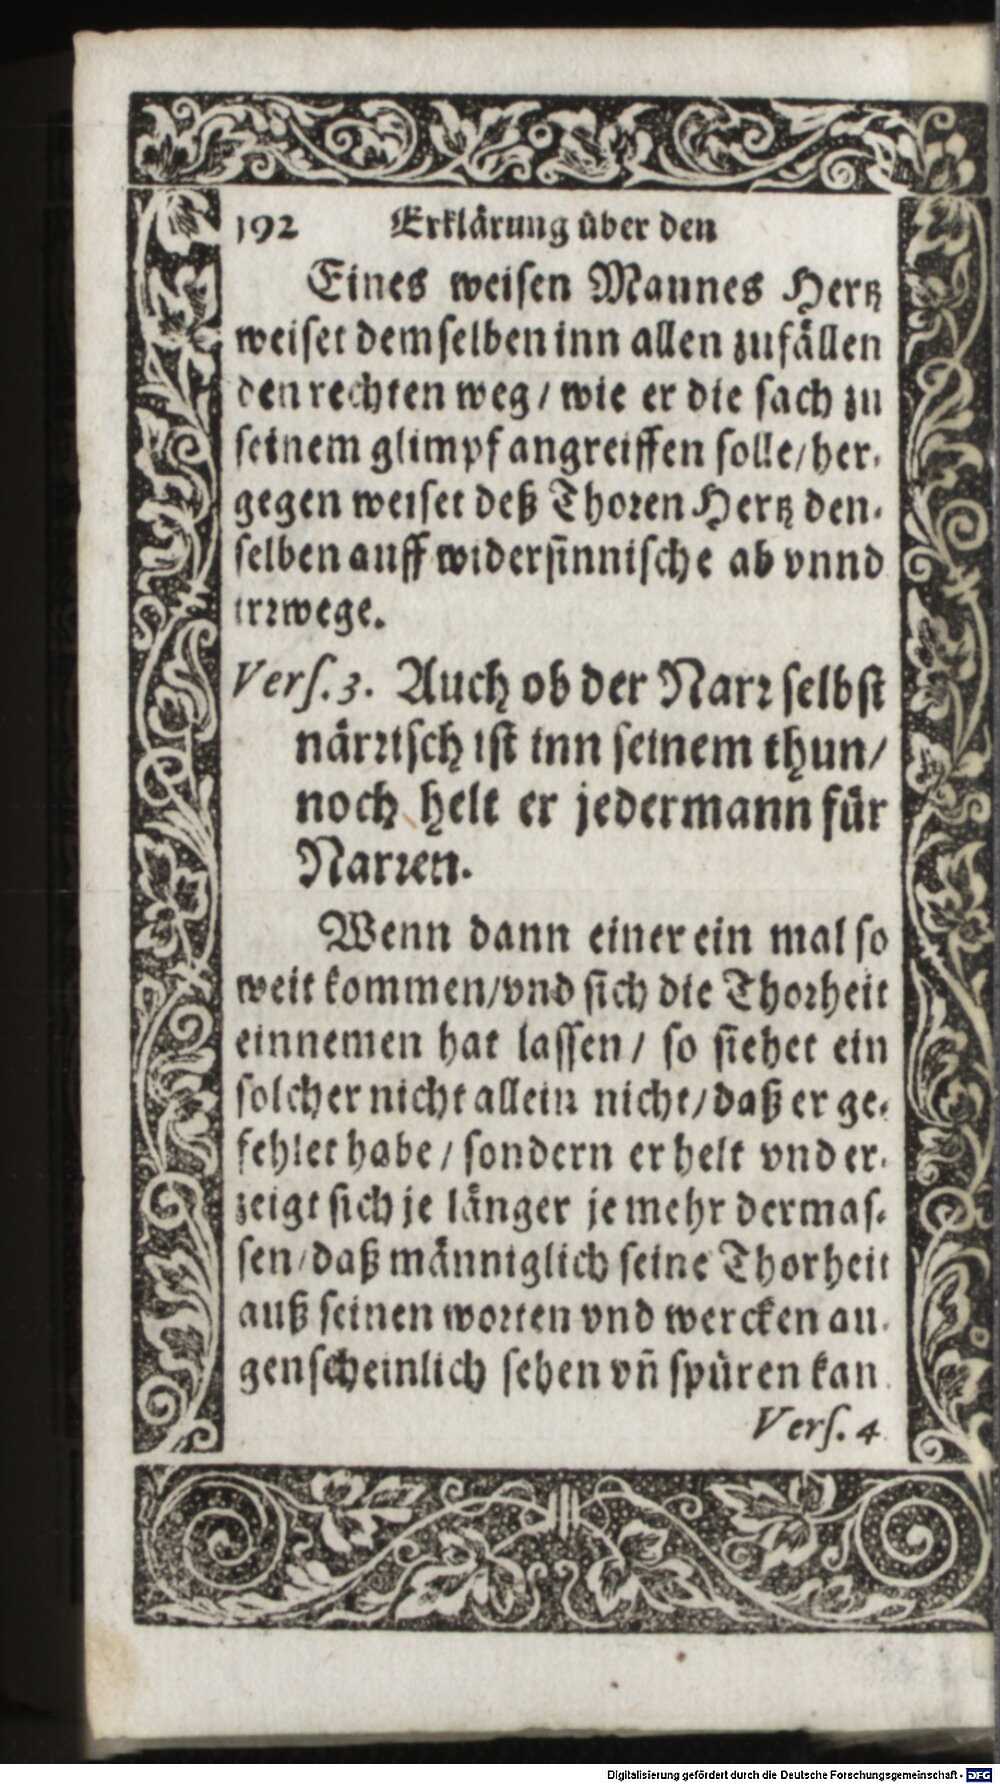 192 Erklärung über den
Eines weisen Mannes Hertz
weiset demselben inn allen zufällen
den rechten weg / wie er die sach zu
seinem glimpf angreiffen solle / her-
gegen weiset deß Thoren Hertz den-
selben auff widersinnische ab vnnd
irrwege.
Vers. 3. Auch ob der Narr selbst
närrisch ist inn seinem thun /
noch helt er jedermann für
Narren.
Wenn dann einer ein mal so
weit kommen / vnd sich die Thorheit
einnemen hat lassen / so siehet ein
solcher nicht allein nicht / daß er ge-
fehlet habe / sondern er helt vnd er-
zeigt sich je länger je mehr dermas-
sen / daß männiglich seine Thorheit
auß seinen worten vnd wercken au-
genscheinlich sehen vn̄ spüren kan.
Vers. 4.
Digitalisierung gefördert durch die Deutsche Forschungsgemeinschaft - DFG